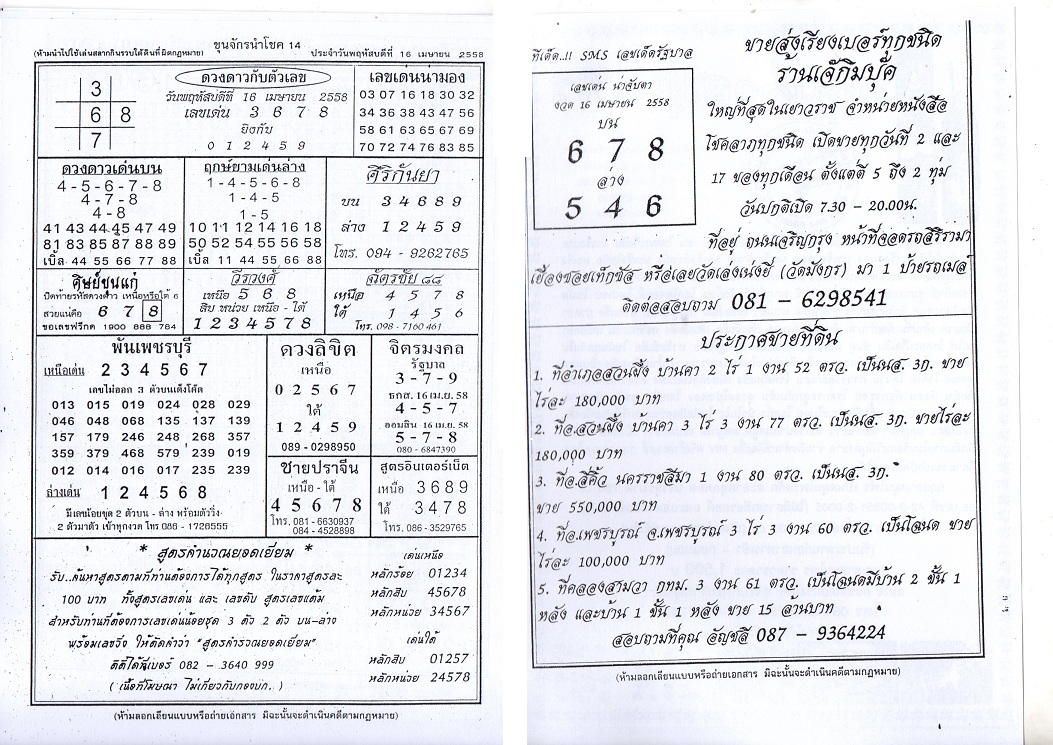 ขุนจักรนำโชค 14
(ห้ามนำไปใช้เล่นสลากกินรวบใต้ดินที่ผิดกฎหมาย) ประจำวันพฤหัสบดีที่ 16 เมษายน 2558
3
6 8
7
ดวงดาวกับตัวเลข
วันพฤหัสบดีที่ 16 เมษายน 2558
เลขเด่น 3 6 7 8
ยิงกับ
0 1 2 4 5 9
เลขเด่นน่ามอง
03 07 16 18 30 32
34 36 38 43 47 56
58 61 63 65 67 69
70 72 74 76 83 85
ดวงดาวเด่นบน
4-5-6-7-8
4-7-8
4-8
41 43 44 45 47 49
81 83 85 87 88 89
เบิ้ล 44 55 66 77 88
ฤกษ์ยามเด่นล่าง
1-4-5-6-8
1-4-5
1-5
10 11 12 14 16 18
50 52 54 55 56 58
เบิ้ล 11 44 55 66 88
ศิริกันยา
บน 3 4 6 8 9
ล่าง 1 2 4 5 9
โทร. 094 - 9262765
ศิษย์ขุนแก่
ปิดท้ายรหัสดวงดาว เหนือหรือใต้ 6
สวยแน่คือ 6 7 8
ขอเลขฟรีกด 1900 888 784
วีรวงศ์
เหนือ 5 6 8
สิบ หน่วย เหนือ - ใต้
1 2 3 4 5 7 8
ฉัตรชัย ๘๘
เหนือ 4 5 7 8
ใต้ 1 4 5 6
โทร. 098 - 7160 461
พันเพชรบุรี
เหนือเด่น 2 3 4 5 6 7
เลขไม่ออก 3 ตัวบนเต็งโต๊ด
013 015 019 024 028 029
046 048 068 135 137 139
157 179 246 248 268 357
359 379 468 579 239 019
012 014 016 017 235 239
ล่างเด่น 1 2 4 5 6 8
มีเลขน้อยชุด 2 ตัวบน - ล่าง พร้อมตัววิ่ง
2 ตัวมาตัว เข้าทุกงวด โทร 086 - 1726555
ดวงลิขิต
เหนือ
0 2 5 6 7
ใต้
1 2 4 5 9
089 - 0298950
จิตรมงคล
รัฐบาล
3 - 7 - 9
ธกส. 16 เม.ย. 58
4 - 5 - 7
ออมสิน 16 เม.ย. 58
5 - 7 - 8
080 - 6847390
ชายปราจีน
เหนือ - ใต้
4 5 6 7 8
โทร. 081 - 6630937
084 - 4528898
สูตรอินเตอร์เน็ต
เหนือ 3 6 8 9
ใต้ 3 4 7 8
โทร. 086 - 3529765
* สูตรคำนวณยอดเยี่ยม *
รับ..ค้นหาสูตรตามที่ท่านต้องการได้ทุกสูตร ในราคาสูตรละ
100 บาท ทั้งสูตรเลขเด่น และ เลขดับ สูตรเลขแต้ม
สำหรับท่านที่ต้องการเลขเด่นน้อยชุด 3 ตัว 2 ตัว บน-ล่าง
พร้อมเลขวิ่ง ให้ตัดคำว่า "สูตรคำรวณยอดเยี่ยม"
ติดได้ที่เบอร์ 082 - 3640 999
( เนื้อที่โฆษณา ไม่เกี่ยวกับกองบก. )
เด่นเหนือ
หลักร้อย 01234
หลักสิบ 45678
หลักหน่วย 34567
เด่นใต้
หลักสิบ 01257
หลักหน่วย 24578
(ห้ามลอกเลียนแบบหรือถ่ายเอกสาร มิฉะนั้นจะดำเนินคดีตามกฎหมาย)
ทีเด็ด..!! SMS เลขเด็ดรัฐบาล
เลขเด่น น่าจับตา
งวด 16 เมษายน 2558
บน
6 7 8
ล่าง
5 4 6
ขายส่งเรียงเบอร์ทุกชนิด
ร้านเจ๊กิมบุ๊ค
ใหญ่ที่สุดในเยาวราช จำหน่ายหนังสือ
โชคลาภทุกชนิด เปิดขายทุกวันที่ 2 และ
17 ของทุกเดือน ตั้งแต่ตี 5 ถึง 2 ทุ่ม
วันปกติเปิด 7.30 - 20.00น.
ที่อยู่ ถนนเจริญกรุง หน้าที่จอดรถสิริรามา
เยื้องซอยเท็กซัส หรือเลยวัดเล่งเน่งยี่ (วัดมังกร) มา 1 ป้ายรถเมล์
ติดต่อสอบถาม 081 - 6298541
ประกาศขายที่ดิน
1. ที่อำเภอสวนผึ้ง บ้านคา 2 ไร่ 1 งาน 52 ตรว. เป็นนส. 3ก. ขาย
ไร่ละ 180,000 บาท
2. ที่อ.สวนผึ้ง บ้านคา 3 ไร่ 3 งาน 77 ตรว. เป็นนส. 3ก. ขายไร่ละ
180,000 บาท
3. ที่อ.สีคิ้ว นครราชสีมา 1 งาน 80 ตรว. เป็นนส. 3ก.
ขาย 550,000 บาท
4. ที่อ.เพชรบูรณ์ จ.เพชรบูรณ์ 3 ไร่ 3 งาน 60 ตรว. เป็นโฉนด ขาย
ไร่ละ 100,000 บาท
5. ที่คลองสามวา กทม. 3 งาน 61 ตรว. เป็นโฉนดมีบ้าน 2 ชั้น 1
หลัง และบ้าน 1 ชั้น 1 หลัง ขาย 15 ล้านบาท
สอบถามที่คุณ อัญชลี 087 - 9364224
(ห้ามลอกเลียนแบบหรือถ่ายเอกสาร มิฉะนั้นจะดำเนินคดีตามกฎหมาย)